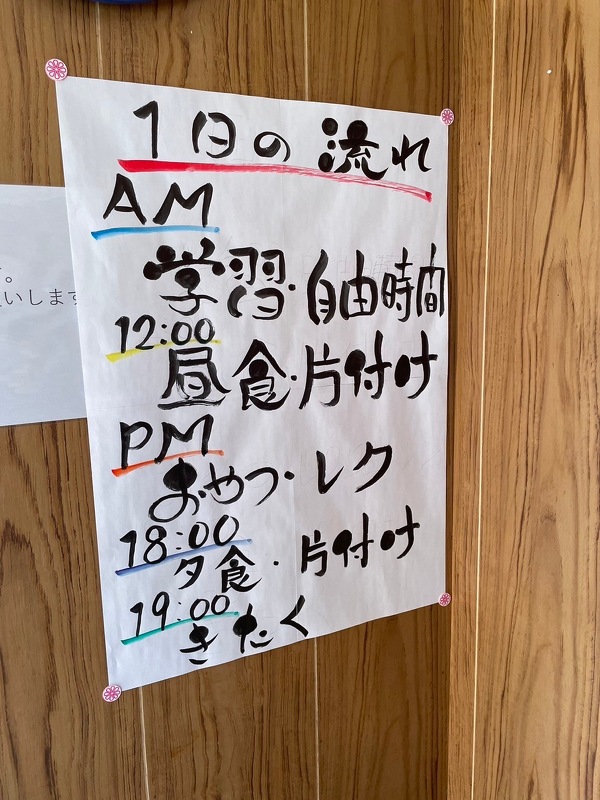 1日の流れ
AM
学習・自由時間
12:00
昼食・片付け
PM
おやつ・レク
18:00
夕食・片付け
19:00
きたく
。
いします